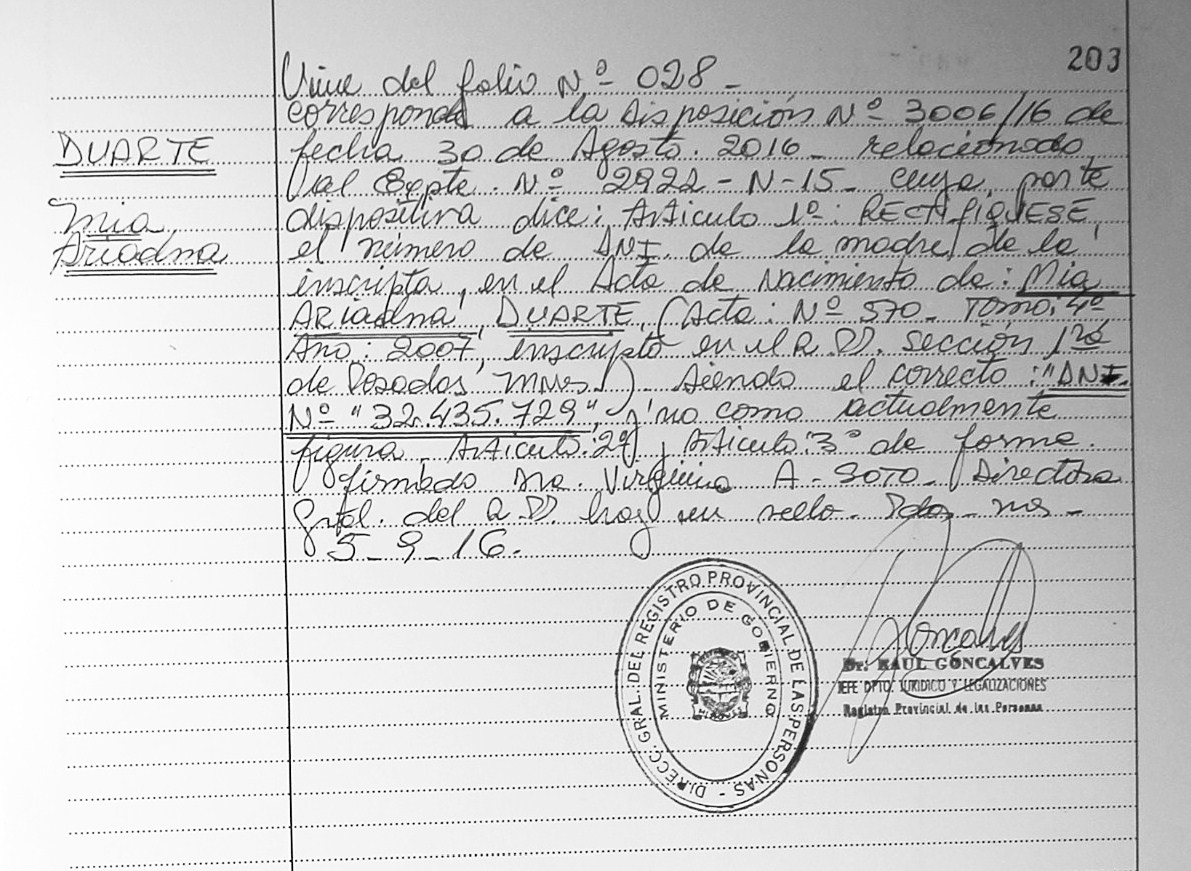 203
Viene del folio Nº - 028 -
corresponde a la Disposición Nº 3006/16 de
DUARTE
fecha 30 de Agosto. 2016 - relacionado
al Expte. Nº 2922 - N - 15 - cuya parte
Mia
dispositiva dice: Articulo 1º: RECTIFIQUESE,
Ariadna
el número de DNI. de la madre de la
inscripta, en el Acta de Nacimiento de: Mia
ARiadna, DUARTE, (Acta: Nº 570 - Tomo: 4º
Año: 2007, inscripto en el R.PP. sección 1ra
de Posadas Mnes.) - siendo el correcto: "DNI
Nº "32.435.729", y no como actualmente
figura - Articulo: 2º, Articulo: 3º de forma.
firmado Dra. Virginia A - SOTO - Directora
Gral. del R.PP. hay un sello - Pdas - Mns -
5 - 9 - 16.
DIRECC. GRAL. DEL REGISTRO PROVINCIAL DE LAS PERSONAS -
MINISTERIO DE GOBIERNO
Goncalves
Dr. RAUL GONCALVES
JEFE DPTO. JURIDICO Y LEGALIZACIONES
Registro Provincial de las Personas